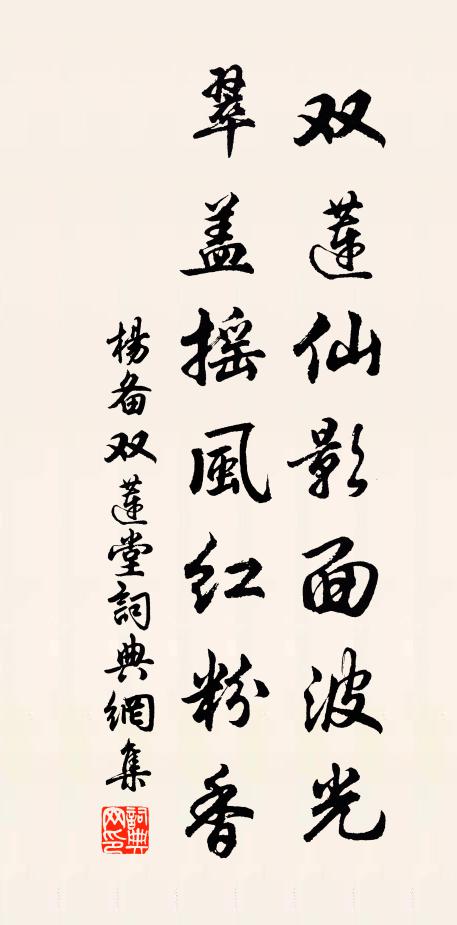 双莲仙影面波光
翠盖摇風红粉香
楊备双莲堂詞典網集
詞典网印